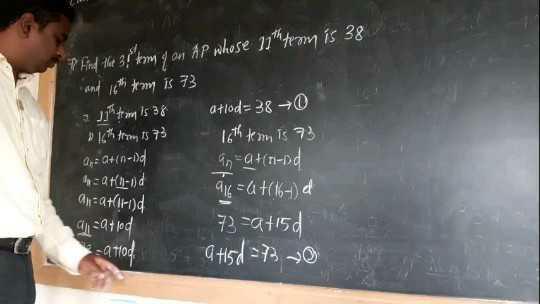 Find the 31st term of an AP whose 11th term is 38
and 16th term is 73
11th term is 38
16th term is 73
an = a+(n-1)d
an = a+(n-1)d
a11 = a+(11-1)d
a11 = a+10d
= a+10d
a+10d = 38 → ①
16th term is 73
an = a+(n-1)d
a16 = a+(16-1)d
73 = a+15d
a+15d = 73 → ②